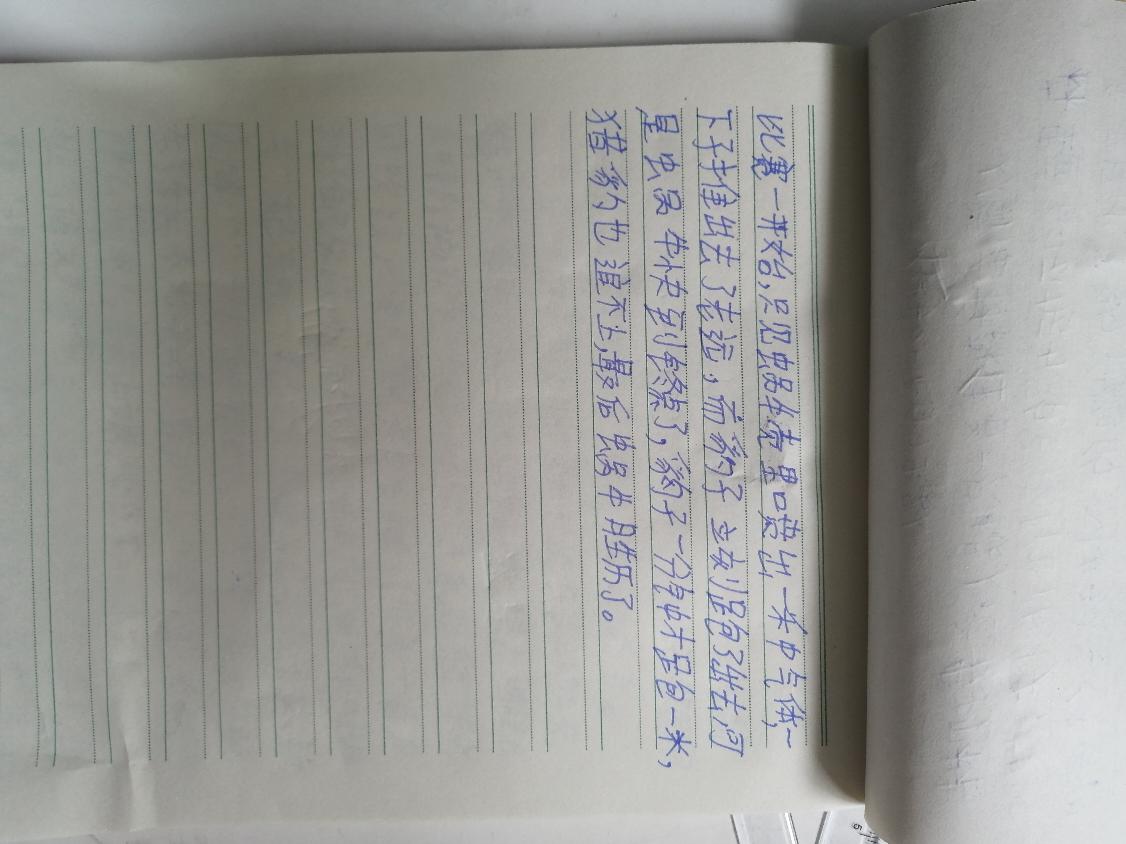 比赛一开始,只见蜗牛壳里喷出一米中气体,一
下子推出去了老远,而豹子立刻跑了出去,可
是蜗牛快到终点了,豹子一分钟才跑一米,
猎豹也追不上,最后蜗牛胜历了。